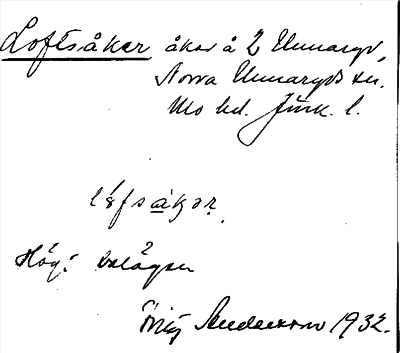 Loftsåker åker å 2 Unnaryd,
Norra Unnaryds sn.
Mo hd. Jönk. l.
låfsåkər.
Högt belägen
Anderson 1932.